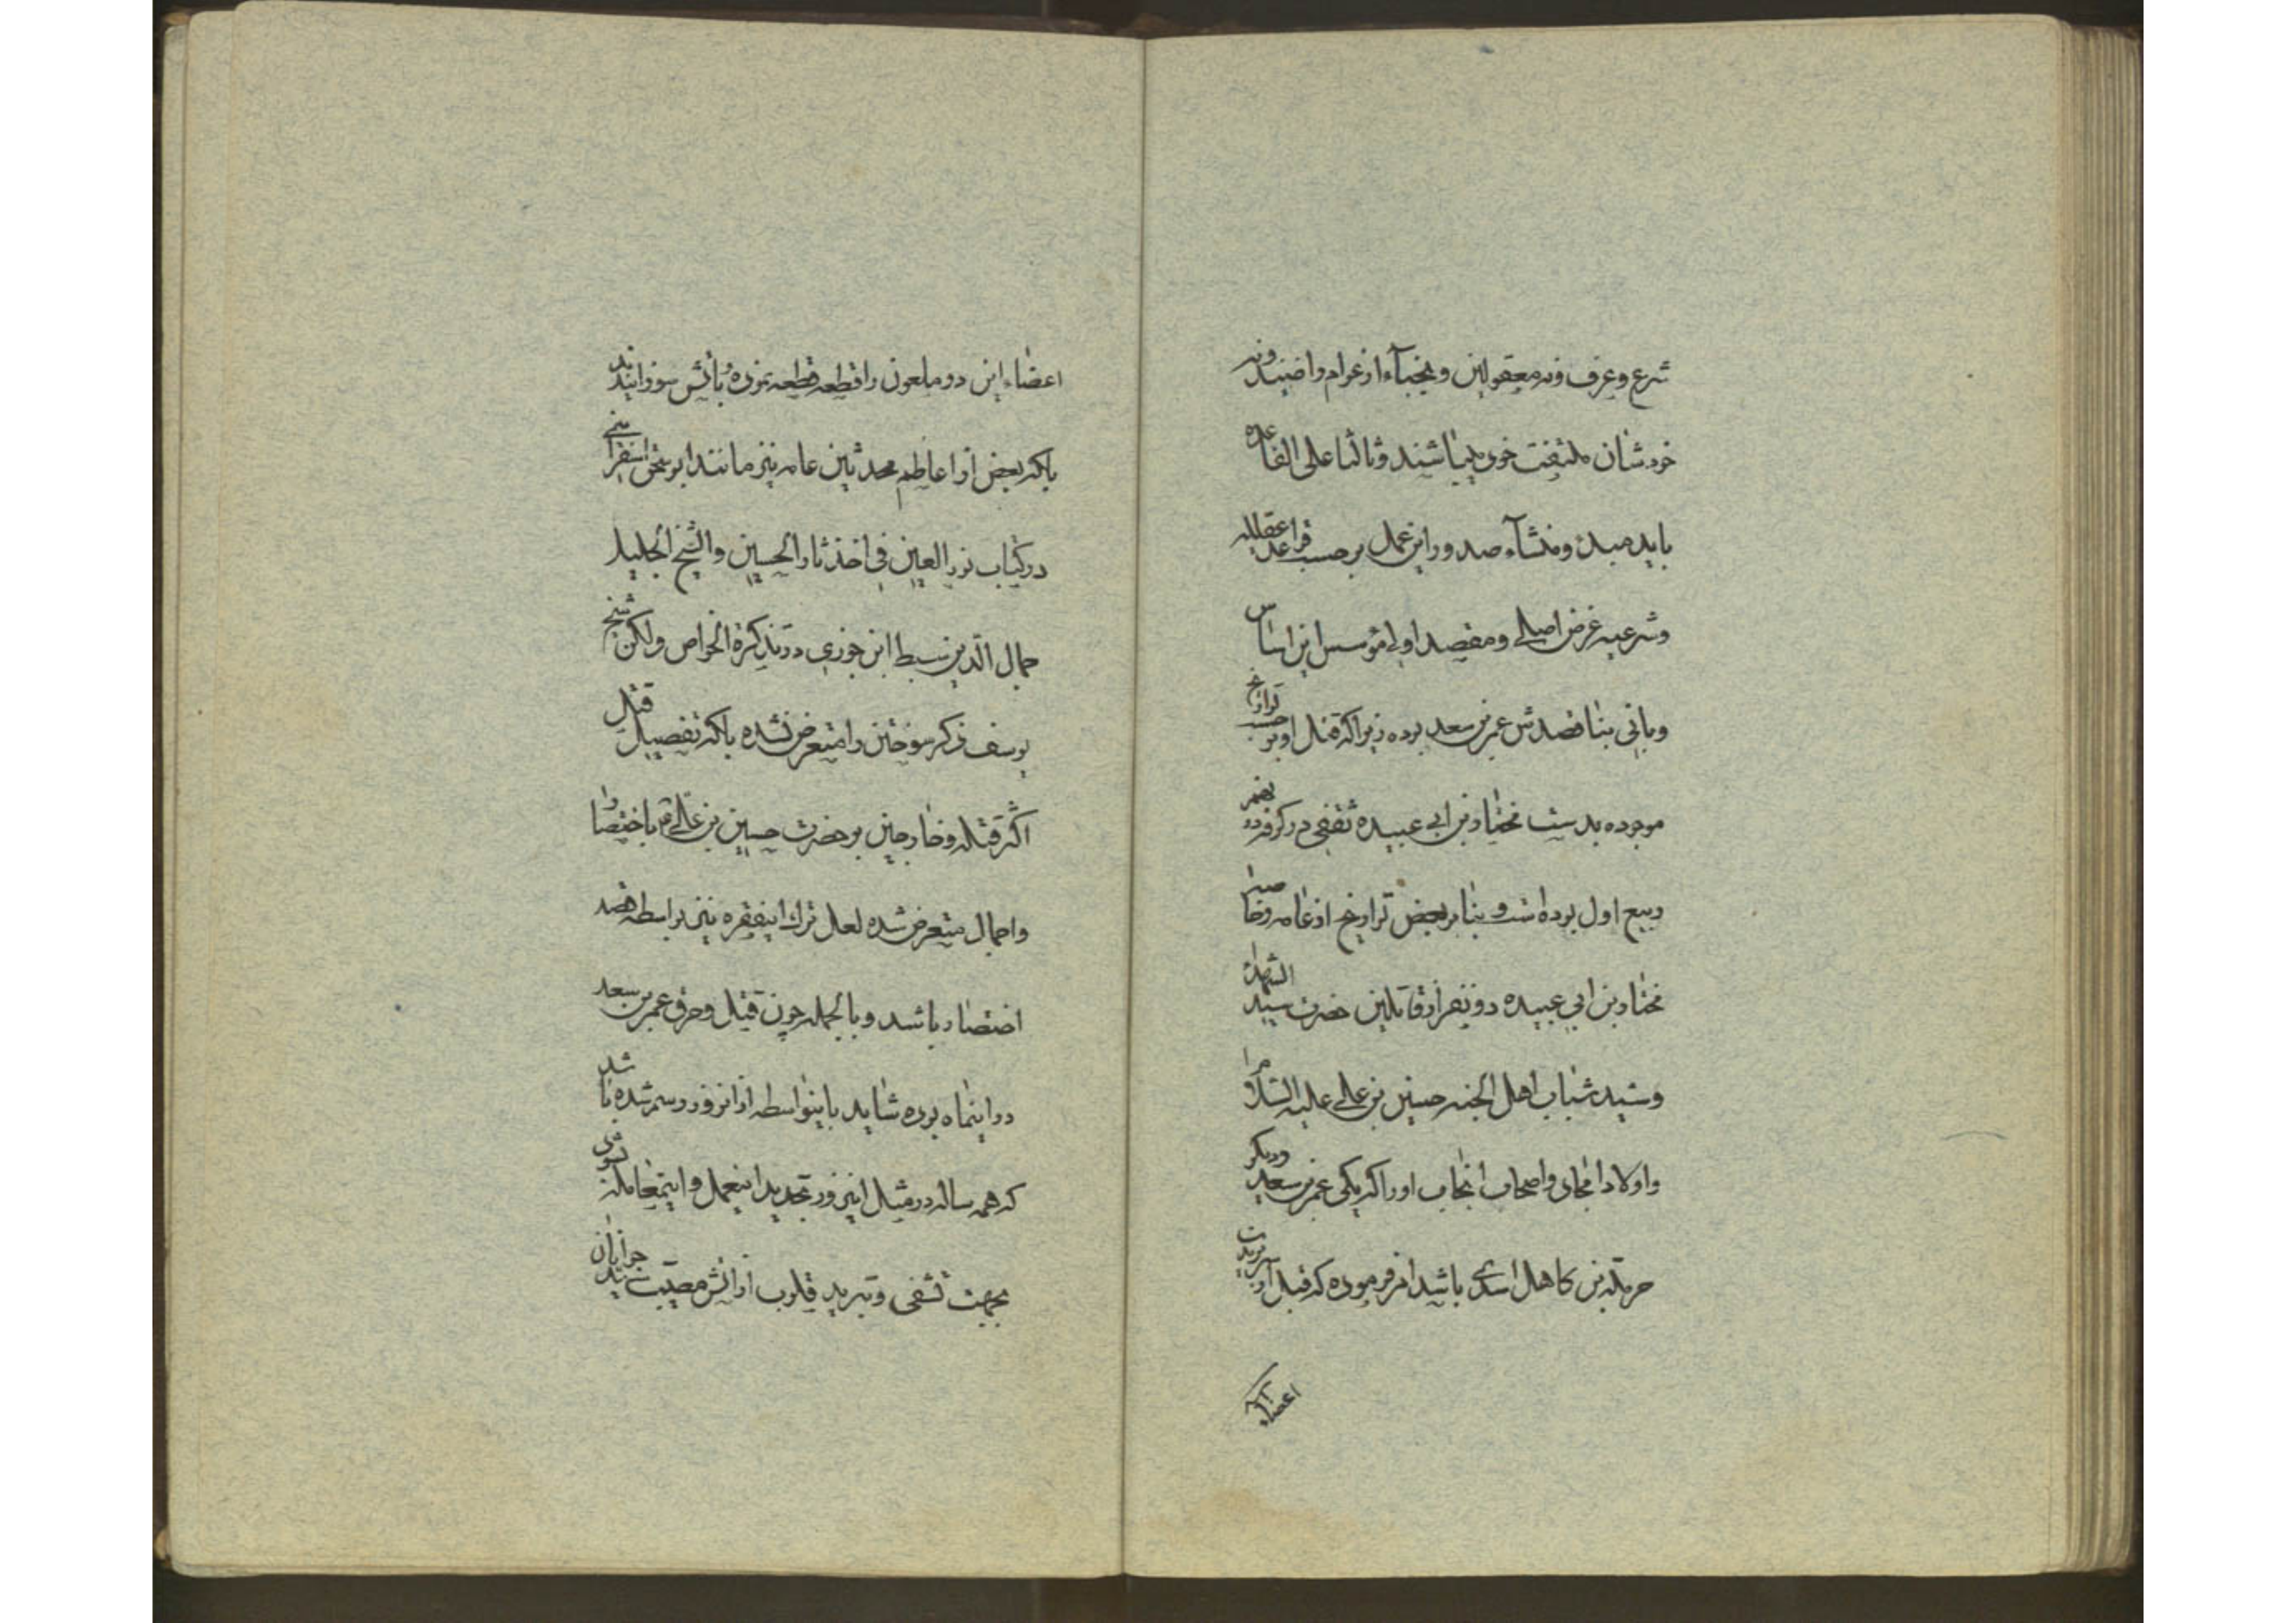 شرع و عرف و نه معقولین و نجباء از عوام راضیند و نه
خودشان ملتفت خوی میباشند و ثالثا علی القاعده
باید مبدء و منشآء صدور این عمل بر حسب قواعد عقلیه
و شرعیه غرض اصلی و مقصد اولی مؤسس این اساس
و بانی بنا قصدش عمر بن سعد بوده زیرا که قتل او بر حسب تواریخ
موجوده بدست مختار بن ابی عبیده ثقفی در کوفه در نهم
ربیع اول بوده است و بنا بر بعض تواریخ از عامه و خاصه
مختار بن ابی عبیده دو نفر از قاتلین حضرت سید الشهداء
و سید شباب اهل الجنه حسین بن علی علیه السلام را
و اولاد امجاد و اصحاب انجاب او را که یکی عمر بن سعد و دیگر
حرملة بن کاهل اسدی باشد امر فرموده که قبل از
اعضاء
اعضاء این دو ملعون را قطعه قطعه نموده و بآتش سوزانیدند
بلکه بعض از اعاظم محدثین عامه نیز مانند ابو سحق اسفراینی
در کتاب نور العین فی اخذ ثار الحسین و الشیخ الجلیل
جمال الدین سبط ابن جوزی در تذکرة الخواص ولکن شیخ
یوسف ذکر سوختن را متعرض نشده بلکه تفصیل قتل
اکثر قتله و خارجین بر حضرت حسین بن علی را باختصار
و اجمال متعرض شده لعل ترک اینفقره نیز بواسطه قصد
اختصار باشد و بالجمله چون قتل و حرق عمر بن سعد
در اینماه بوده شاید باینواسطه از انروز رسم شده باشد
که همه ساله در مثل این روز تجدید اینعمل و اینمعامله نشود
بجهت تشفی و تبرید قلوب از آتش مصیبت سید جوانان